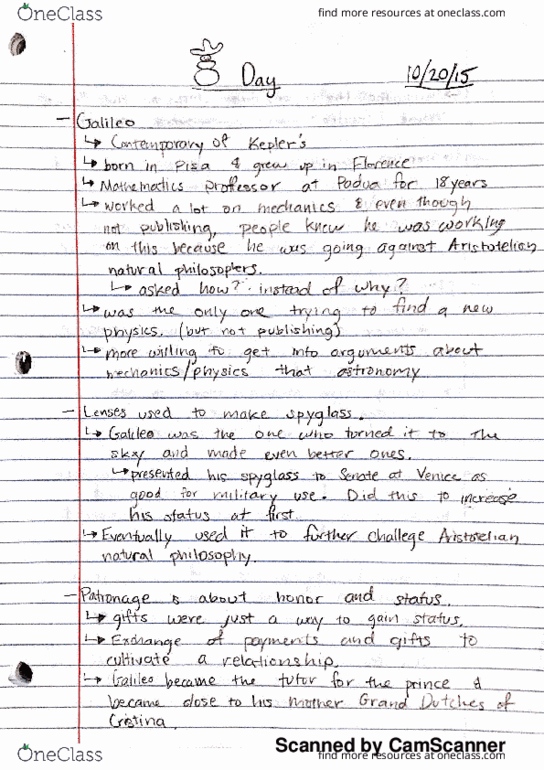 OneClass
find more resources at oneclass.com
8 Day 10/20/15
- Galileo
↳ Contemporary of Kepler's
↳ born in Pisa & grew up in Florence
↳ Mathematics professor at Padua for 18 years
↳ worked a lot on mechanics & even though
not publishing, people knew he was working
on this because he was going against Aristotelian
natural philosophers.
↳ asked how? instead of why?
↳ was the only one trying to find a new
physics. (but not publishing)
↳ more willing to get into arguments about
mechanics/physics that astronomy
- Lenses used to make spyglass.
↳ Galileo was the one who turned it to the
sky and made even better ones.
↳ presented his spyglass to Senate at Venice as
good for military use. Did this to increase
his status at first.
↳ Eventually used it to further challege Aristotelian
natural philosophy.
- Patronage is about honor and status.
↳ gifts were just a way to gain status.
↳ Exchange of payments and gifts to
cultivate a relationship.
↳ Galileo became the tutor for the prince &
became close to his mother Grand Dutches of
Cristina.
Scanned by CamScanner
OneClass
find more resources at oneclass.com